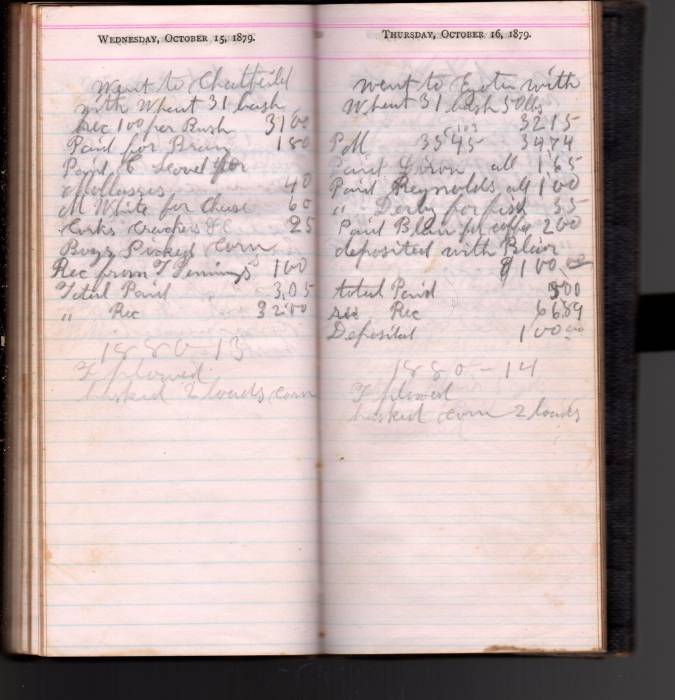 WEDNESDAY, OCTOBER 15, 1879.
Went to Chatfeild
with Wheat 31 bush
Rec 100 per Bush 3100
Paid for Bran 180
Paid for
Mollasses 40
M White for Cheese 60
Corks Crackers &C 25
Boys Picked Corn
Rec from T Jennings 100
Total Paid 3,05
" Rec 3200
1880-13
F plowed
husked 2 loads corn
THURSDAY, OCTOBER 16, 1879.
went to Eyota with
Wheat 31 bush 50 lbs
3215
3474
Paid all 1,65
Paid Reynolds all 100
" Derby for fish 35
Paid Blair for coffee 200
deposited with Blair
$100,00
total Paid 500
Rec 6689
Deposited 10000
1880-14
F plowed
husked corn 2 loads